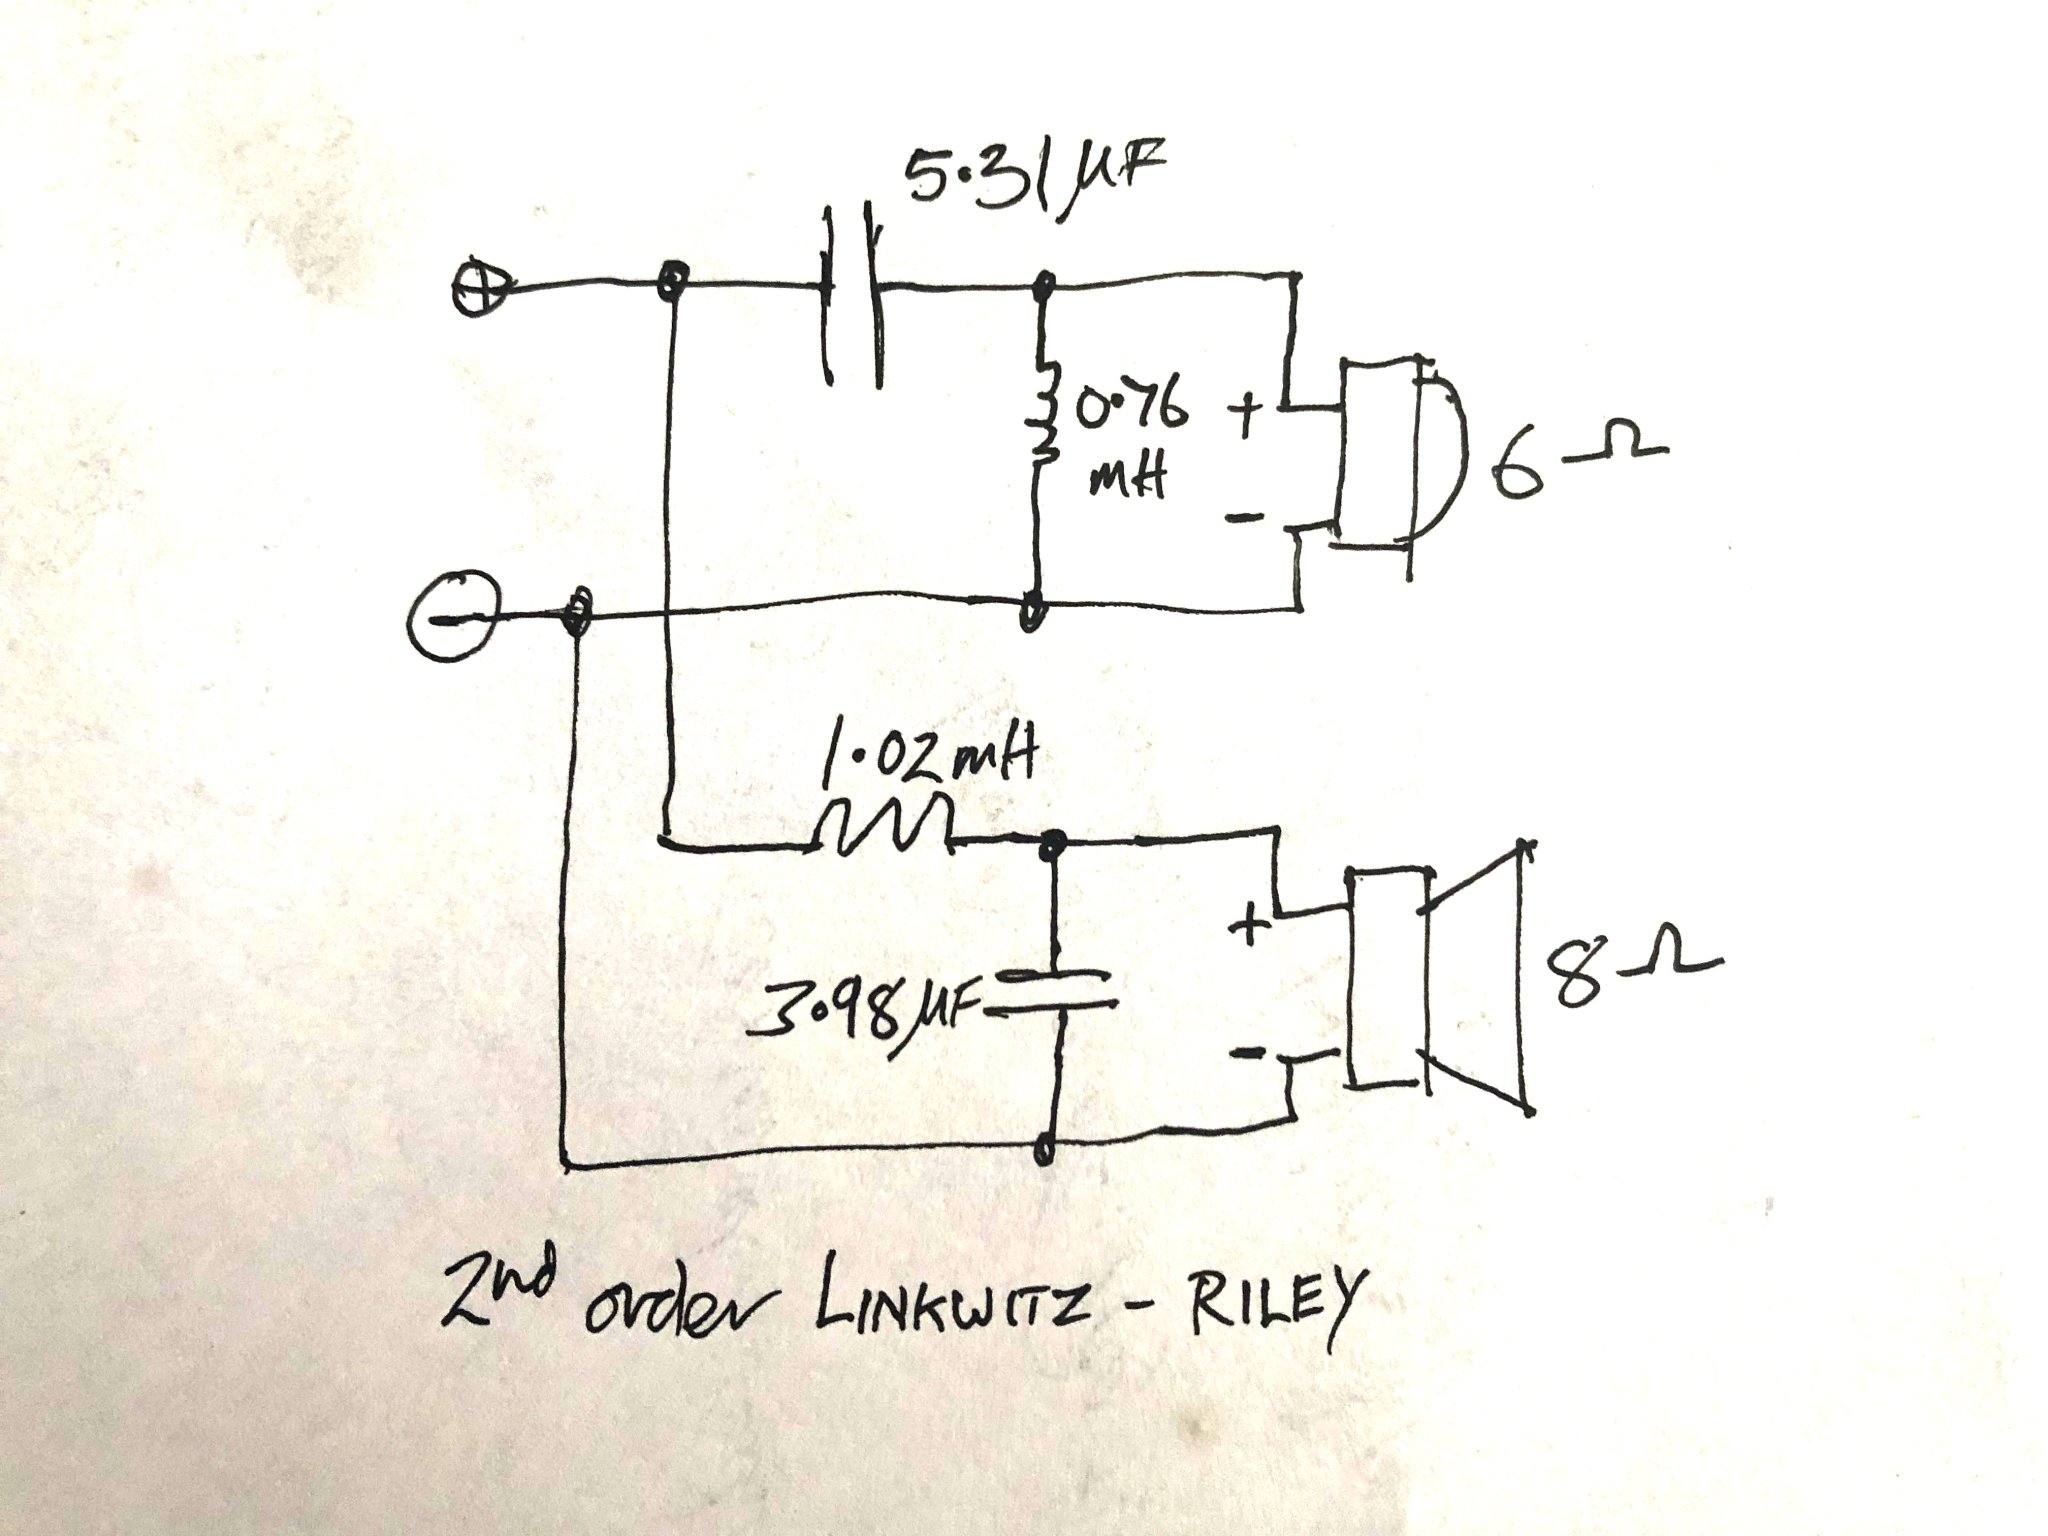 5.31 μF
0.76
mH
+
-
6 Ω
1.02 mH
3.98 μF
+
-
8 Ω
2nd order LINKWITZ - RILEY